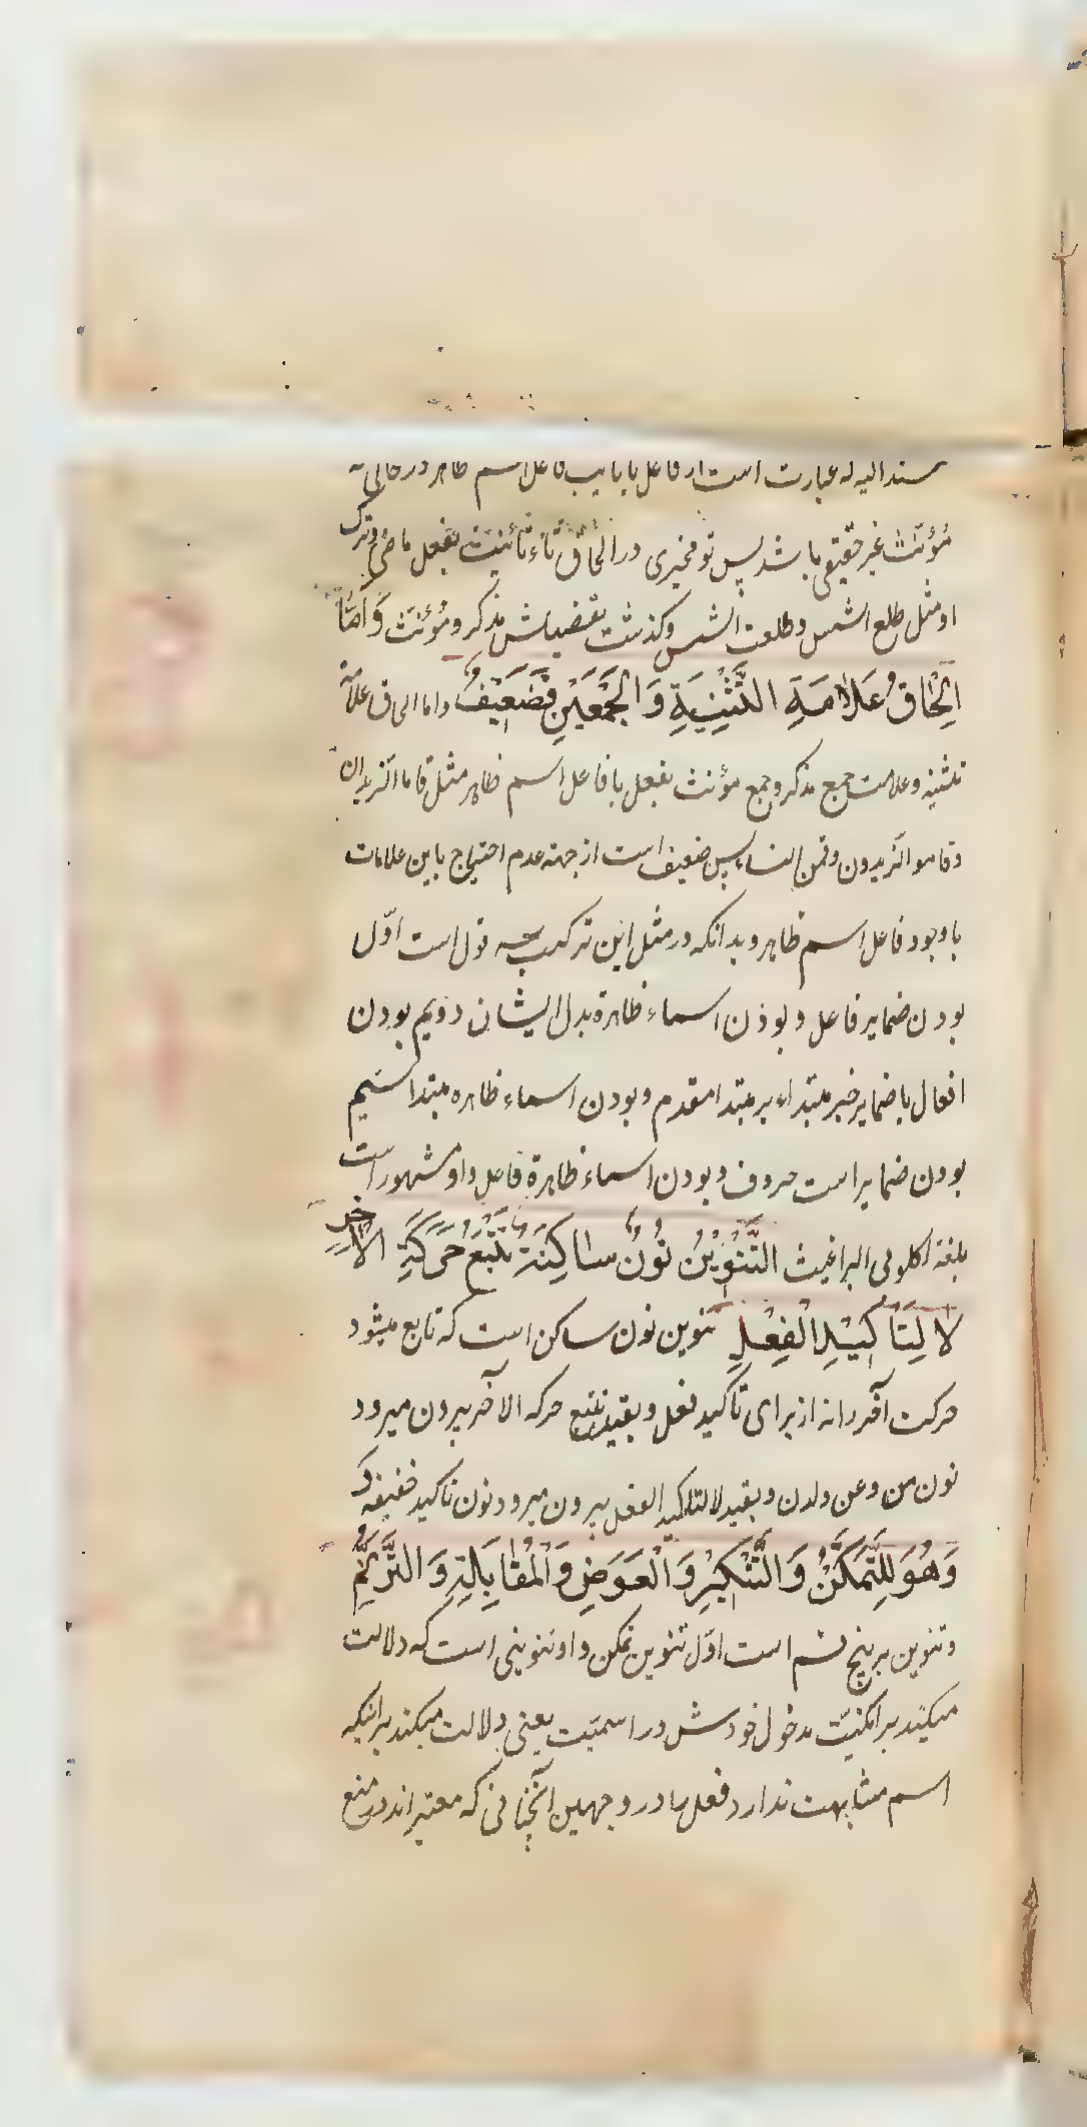 سند الیه که عبارت است از فاعل یا نایب فاعل اسم ظاهر در حالی که
مُؤنّث غیر حقیقی باشد پس تو مخیری در الحاق تاء تأنیث بفعل ماضی و ترک
او مثل طلع الشمس و طلعت الشمس و کذشت تفضیلش مذکر و مُؤنّث وَ اَمّا
اِلْحٰاقُ عَلٰامَةِ التَّثْنِیَةِ وَ الْجَمْعَیْنِ فَضَعِیْفٌ و اما الحاق علامة
تثنیه و علامت جمع مذکر و جمع مؤنث بفعل با فاعل اسم ظاهر مثل قاما الزیدان
و قاموا الزیدون و قمن النساء پس ضعیف است از جهة عدم احتیاج باین علامات
با وجود فاعل اسم ظاهر و بدانکه در مثل این ترکیب سه قول است اوّل
بودن ضمایر فاعل و بودن اسماء ظاهرة بدل ایشان دویم بودن
افعال با ضمایر خبر مبتداء بر مبتدا مقدم و بودن اسماء ظاهره مبتدا سیم
بودن ضمایر است حروف و بودن اسماء ظاهرة فاعل و او مشهور است
بلغة اکلونی البراغیث التَّنْوِیْنُ نُوْنٌ سٰاکِنَةٌ تَتْبَعُ حَرَکَةِ الْاٰخِرِ
لٰا لِتَاْکِیْدِ الْفِعْلِ تنوین نون ساکن است که تابع میشود
حرکت آخر را نه از برای تاکید فعل و بقید تتبع حرکه الاخر بیرون میرود
نون من و عن و لدن و بقید لا لتاکید الفعل بیرون میرود نون تاکید خفیفه
وَ هُوَ لِلتَّمَکُّنِ وَ التَّنْکِیْرِ وَ الْعِوَضِ وَ الْمُقٰابَلَةِ وَ التَّرَنُّمِ
و تنوین بر پنج قسم است اوّل تنوین تمکن و او تنوینی است که دلالت
میکند بر امکنیّت مدخول خودش در اسمیّت یعنی دلالت میکند بر اینکه
اسم مشابهت ندارد فعل را در وجهین آنچنانی که معتبراند در منع